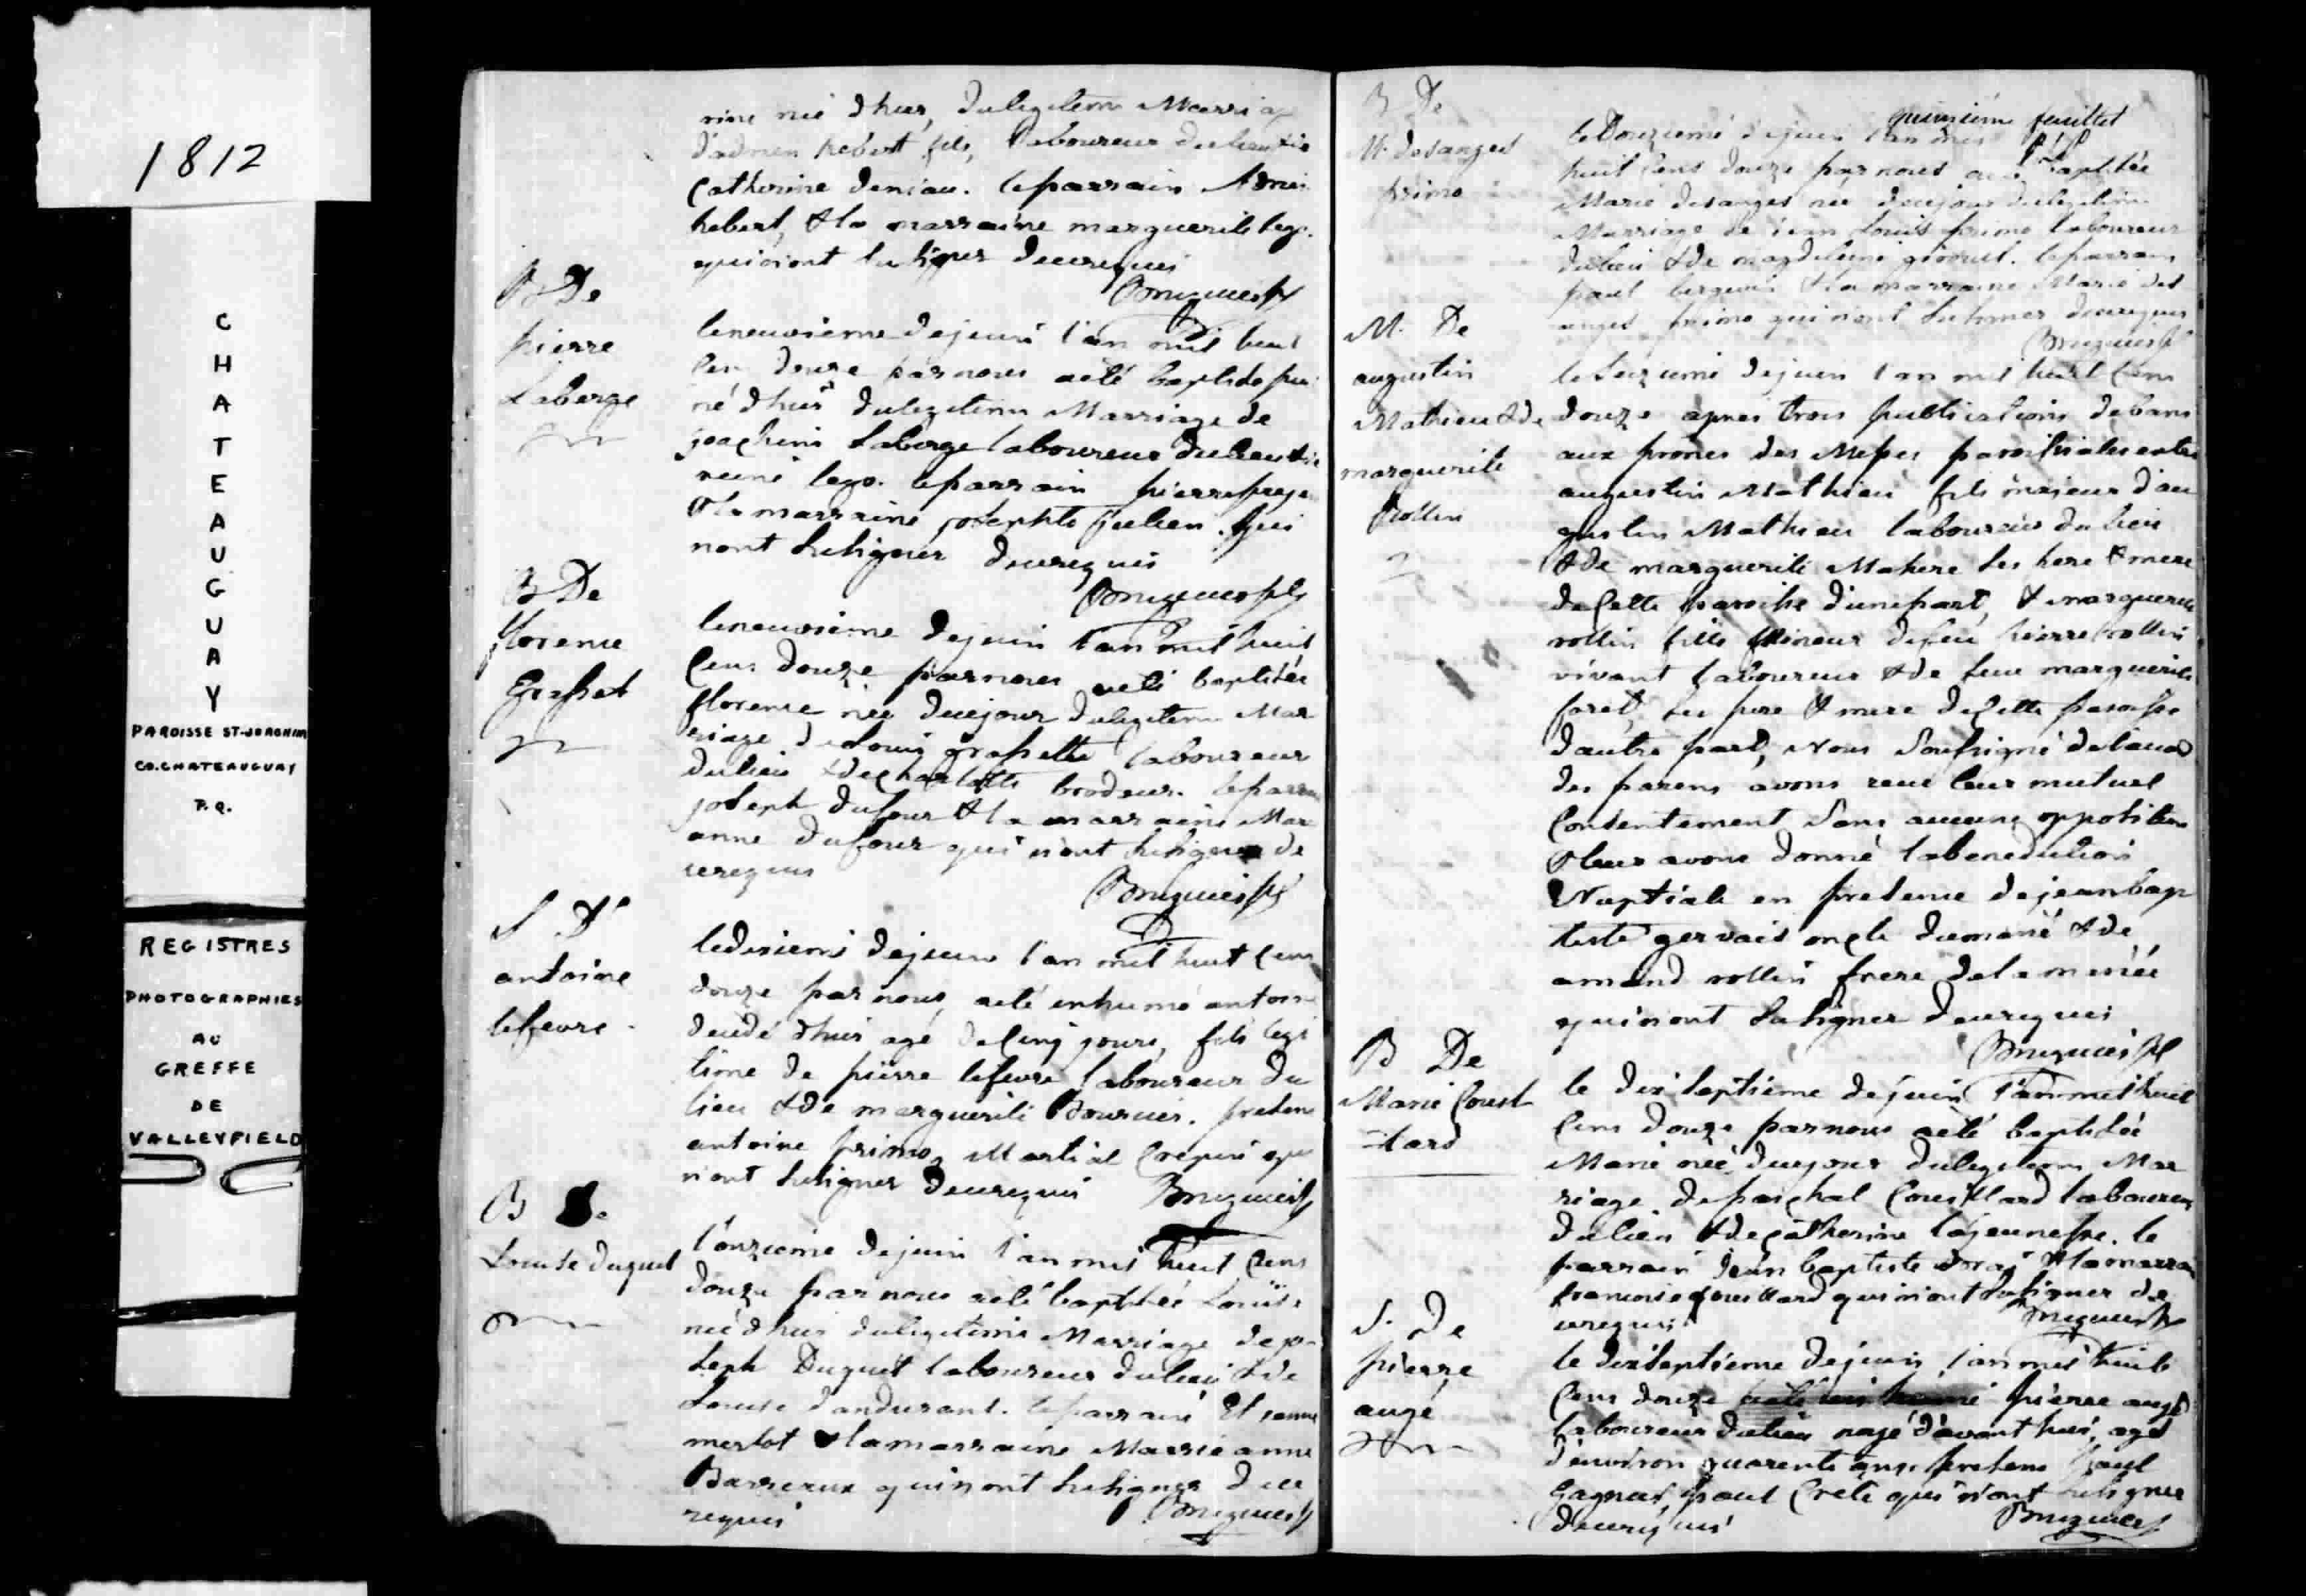 1812
C
H
A
T
E
A
U
G
U
A
Y
PAROISSE ST-JOACHIM
CO. CHATEAUGUAY
P.Q.
REGISTRES
PHOTOGRAPHIES
AU
GREFFE
DE
VALLEYFIELD
rine née d'hier, du legitime Marriage
hebert fils, laboureur du lieu & de
Catherine deniau. le parrain
hebert, & la marraine marguerite
qui n'ont su signer de ce requis
B De
pierre
Laberge
le neuvieme de juin l'an mil huit
cens douze par nous a eté baptisé
né d'hier du legitime Marriage de
joachim Laberge laboureur du lieu & de
reine le parrain pierre
& la marraine josephte julien qui
n'ont su signer de ce requis
B De
florence
Grasset
le neuvieme de juin l'an mil huit
cens douze par nous a eté baptisée
florence née de ce jour du legitime Mar
riage de Louis laboureur
du lieu & de charlotte brodeur. le parrain
joseph dufour & la marraine Marie
anne dufour qui n'ont su signer de
ce requis
S D'
antoine
lefevre
le dixieme de juin l'an mil huit cens
douze par nous, a eté inhumé antoine
decedé d'hier agé de cinq jours, fils legi
time de pierre lefevre laboureur du
lieu & de marguerite presens
antoine primo, Martial Crepin qui
n'ont su signer de ce requis
B De
Louise duquet
l'onzieme de juin l'an mil huit cens
douze par nous a eté baptisée Louise
née d'hier du legitime Marriage de jo
seph Duquet laboureur du lieu & de
Louise dandurant. le parrain Etienne
merlot & la marraine Marrie anne
Barreaux qui n'ont su signer de ce
requis
B De
M. desanges
primo
quinzieme feuillet
le Douzieme de juin l'an mil
huit cens douze par nous a eté baptisée
Marie desanges née de ce jour du legitime
Marriage de jean Louis primo laboureur
du lieu & de magdeleine le parrain
paul & la marraine Marie des
anges primo qui n'ont su signer de ce requis
M. De
augustin
Mathieu & de
marguerite
Rollin
le seizieme de juin l'an mil huit cens
douze apres trois publications de bans
aux prones des Messes paroissiales entre
augustin Mathieu fils majeur d'au
gustin Mathieu laboureur du lieu
& de marguerite ses pere & mere
de cette paroisse d'une part, & marguerite
rollin fille Mineur de feu pierre rollin
vivant laboureur & de feue marguerite
ses pere & mere de cette paroisse
d'autre part, Nous soussigné de l'avis
des parens avons reçu leur mutuel
Consentement sans aucune opposition
& leur avons donné la benediction
Nuptiale en presence de jean bap
tiste gervais oncle du marié & de
amand rollin frere de la mariée
qui n'ont su signer de ce requis
B De
Marie Couil
lard
le dix septieme de juin l'an mil huit
cens douze par nous a eté baptisée
Marie née de ce jour du legitime Mar
riage de paschal Couillard laboureur
du lieu & de catherine lajeunesse. le
parrain jean baptiste & la marraine
francoise Couillard qui n'ont su signer de
ce requis
S. De
pierre
augé
le dix septieme de juin l'an mil huit
cens douze a eté inhumé pierre augé
laboureur du lieu noyé d'avant hier, agé
d'environ quarente ans. presens paul
Gagner, paul qui n'ont su signer
de ce requis